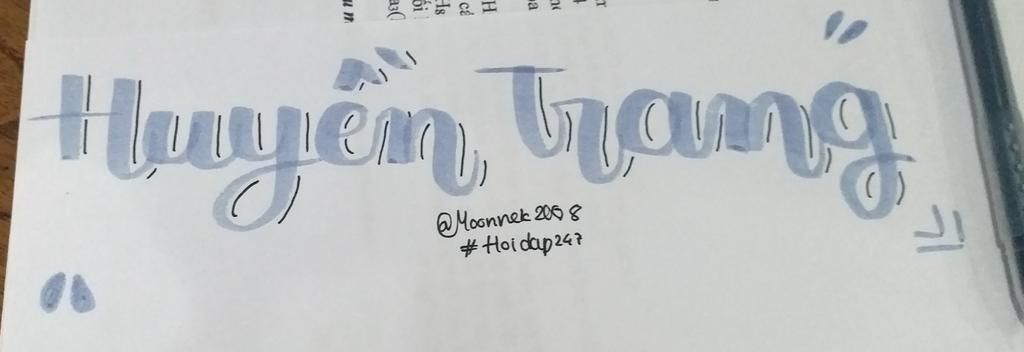 Huyền Trang
@Moonnek2008
#Hoidap247